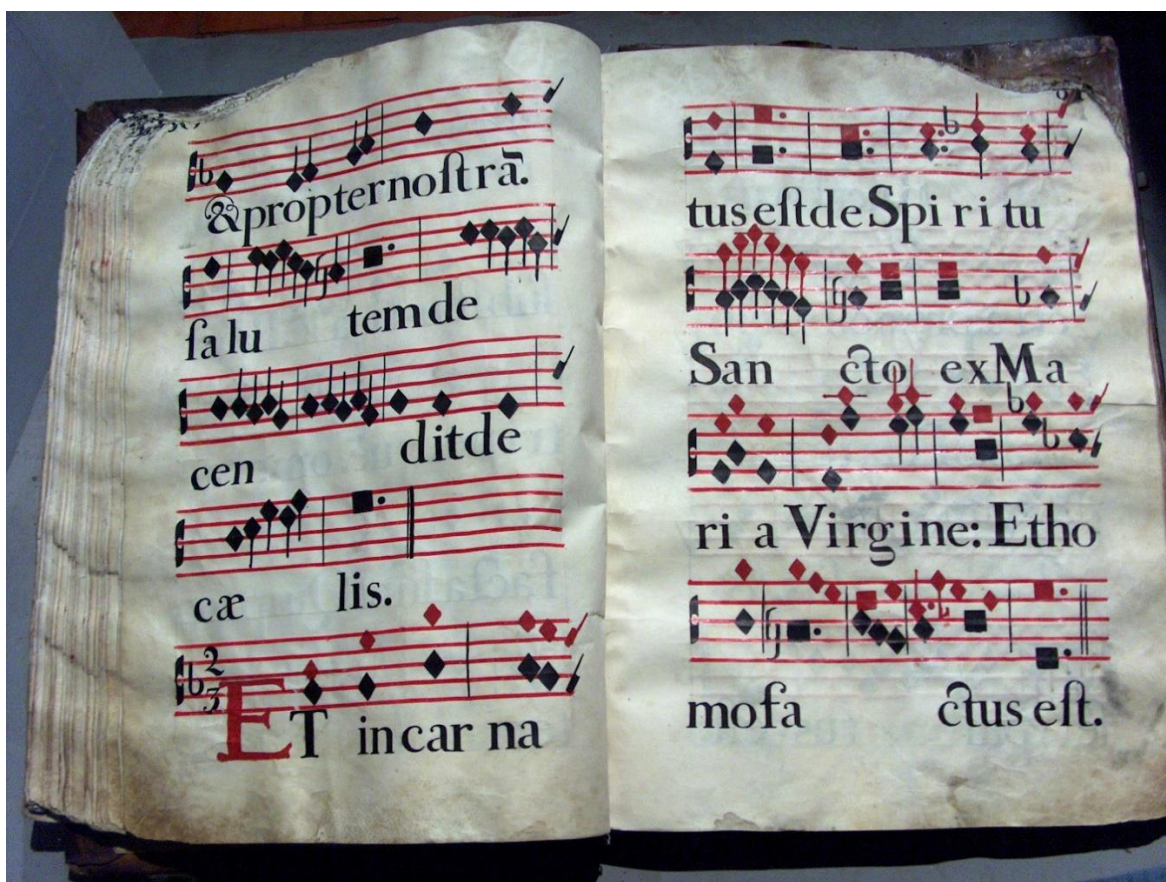 &propternoſtrā.
ſalu temde
cen ditde
cæ lis.
2
3
ET incar na
tuseſtdeSpi ri tu
San cto exMa
ri a Virgine: Etho
mofa ctus eſt.